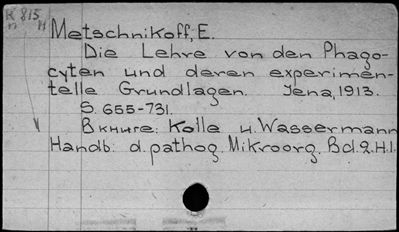 R 815
n H
Metschnikoff, E.
Die Lehre von den Phago-
cyten und deren experimen-
telle Grundlagen. Jena, 1913.
S. 655-731.
В книге: Kolle u. Wassermann
Handb. d. pathog. Mikroorg. Bd. 2. H. 1.